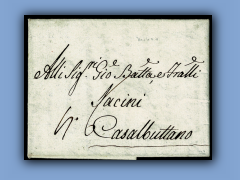 Alli Sig.ri Gio Batta, e Fratli
Pacini
Casalbuttano